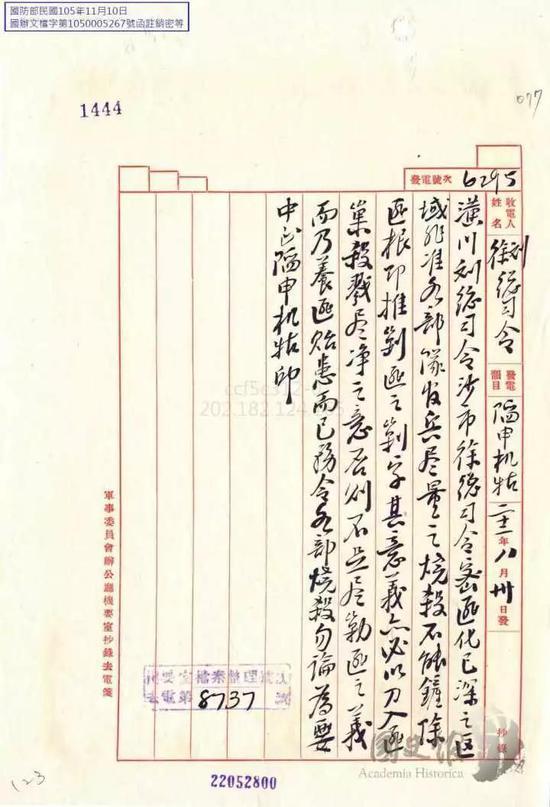 國防部民國105年11月10日
國辦文檔字第1050005267號函註銷密等
1444
077
發電號次 6295
收電人姓名 刘徐總司令 發電韻目 陷申机牯 二十一年八月卅日發 抄錄
潢川刘總司令沙市徐總司令密匪化已深之区
域非准各部隊官兵尽量之燒殺不能鏟除
匪根即推剿匪之剿字其意義亦必以刀入匪
巢殺戮尽净之意否則不足尽勦匪之義
而乃養匪貽患而已務令各部燒殺勿論為要
中正陷申机牯印
軍事委員會辦公廳機要室抄錄去電箋
去電第 8737 號
22052800
國史館
Academia Historica
123